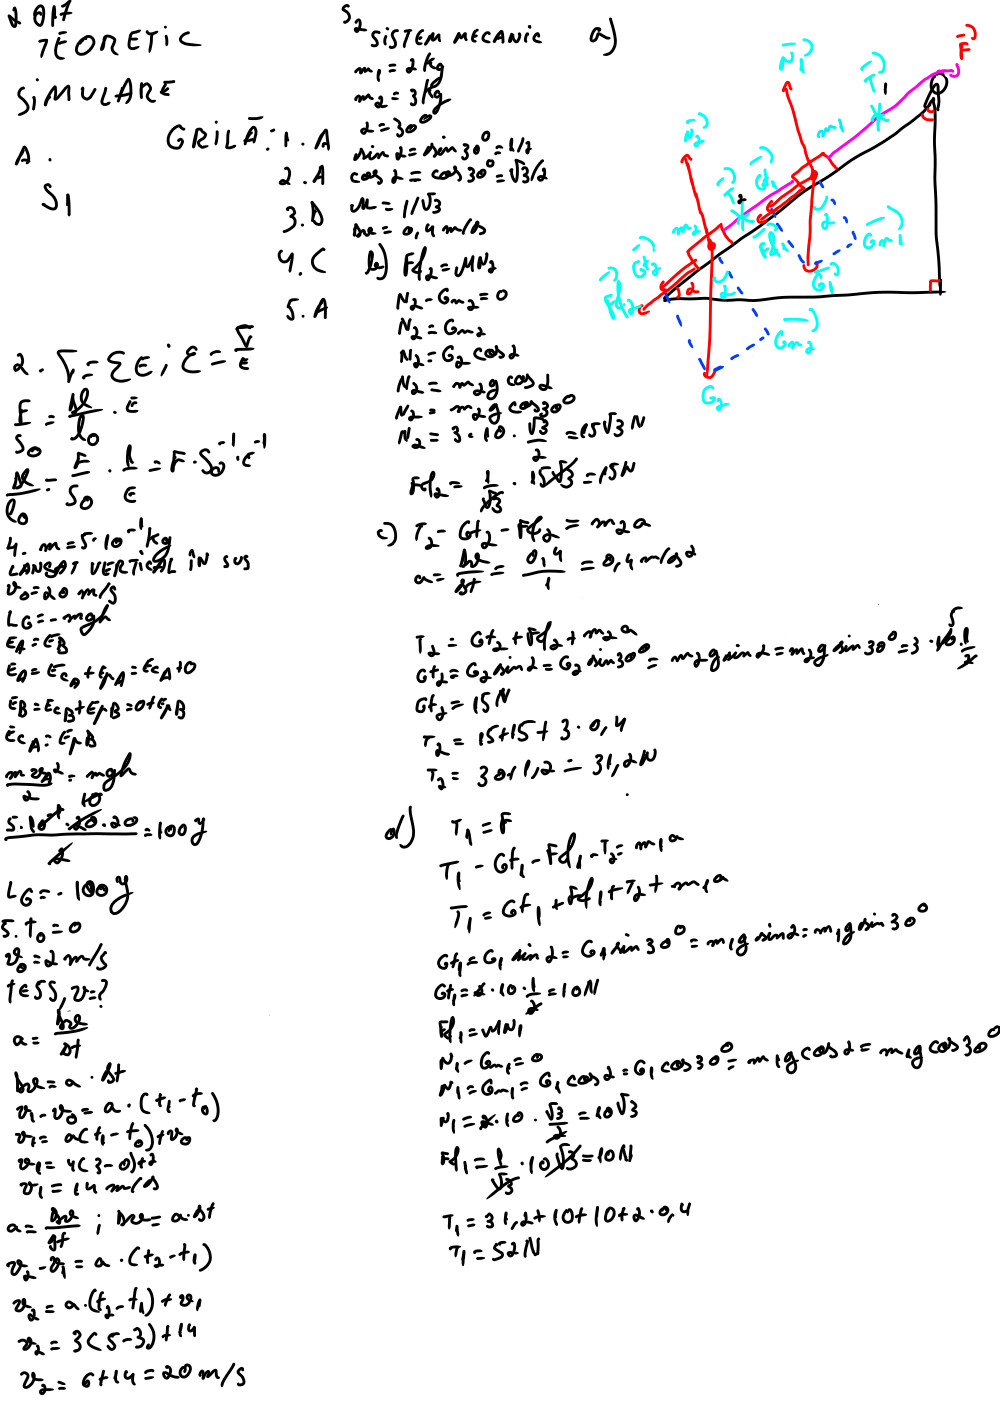 2017
TEORETIC
SIMULARE
A.
S1
GRILĂ: 1. A
2. A
3. D
4. C
5. A
2. σ = εE ; ε = σ/E
F/S0 = Δl/l0 · E
Δl/l0 = F/S0 · 1/E = F · S0^-1 · E^-1
4. m = 5·10^-1 kg
LANSAT VERTICAL ÎN SUS
v0 = 20 m/s
LG = - mgh
EA = EB
EA = EcA + EpA = EcA + 0
EB = EcB + EpB = 0 + EpB
EcA = EpB
m vA²/2 = mgh
5·10^-1 · 20 · 20 / 2 = 100 J
10
LG = - 100 J
5. t0 = 0
v0 = 2 m/s
t ∈ 5s, v = ?
a = Δv/Δt
Δv = a · Δt
v1 - v0 = a · (t1 - t0)
v1 = a(t1 - t0) + v0
v1 = 4(3-0)+2
v1 = 14 m/s
a = Δv/Δt ; Δv = a·Δt
v2 - v1 = a · (t2 - t1)
v2 = a·(t2 - t1) + v1
v2 = 3(5-3)+14
v2 = 6+14 = 20 m/s
S2
SISTEM MECANIC
m1 = 2 kg
m2 = 3 kg
α = 30°
sin α = sin 30° = 1/2
cos α = cos 30° = √3/2
μ = 1/√3
Δv = 0,4 m/s
b) Ff2 = μN2
N2 - Gn2 = 0
N2 = Gn2
N2 = G2 cos α
N2 = m2 g cos α
N2 = m2 g cos 30°
N2 = 3 · 10 · √3/2 = 15√3 N
Ff2 = 1/√3 · 15√3 = 15 N
c) T2 - Gt2 - Ff2 = m2 a
a = Δv/Δt = 0,4/1 = 0,4 m/s²
T2 = Gt2 + Ff2 + m2 a
Gt2 = G2 sin α = G2 sin 30° = m2 g sin α = m2 g sin 30° = 3 · 10 · 1/2
5
Gt2 = 15 N
T2 = 15+15+ 3 · 0,4
T2 = 30+1,2 = 31,2 N
d) T1 = F
T1 - Gt1 - Ff1 - T2 = m1 a
T1 = Gt1 + Ff1 + T2 + m1 a
Gt1 = G1 sin α = G1 sin 30° = m1 g sin α = m1 g sin 30°
Gt1 = 2 · 10 · 1/2 = 10 N
Ff1 = μN1
N1 - Gn1 = 0
N1 = Gn1 = G1 cos α = G1 cos 30° = m1 g cos α = m1 g cos 30°
N1 = 2 · 10 · √3/2 = 10√3
Ff1 = 1/√3 · 10√3 = 10 N
T1 = 31,2+10+10+2·0,4
T1 = 52 N
a)
F
N1
T1
m1
N2
Gt1
T2
m2
Ff1
α
Gn1
G1
Gt2
Ff2
α
α
Gn2
G2